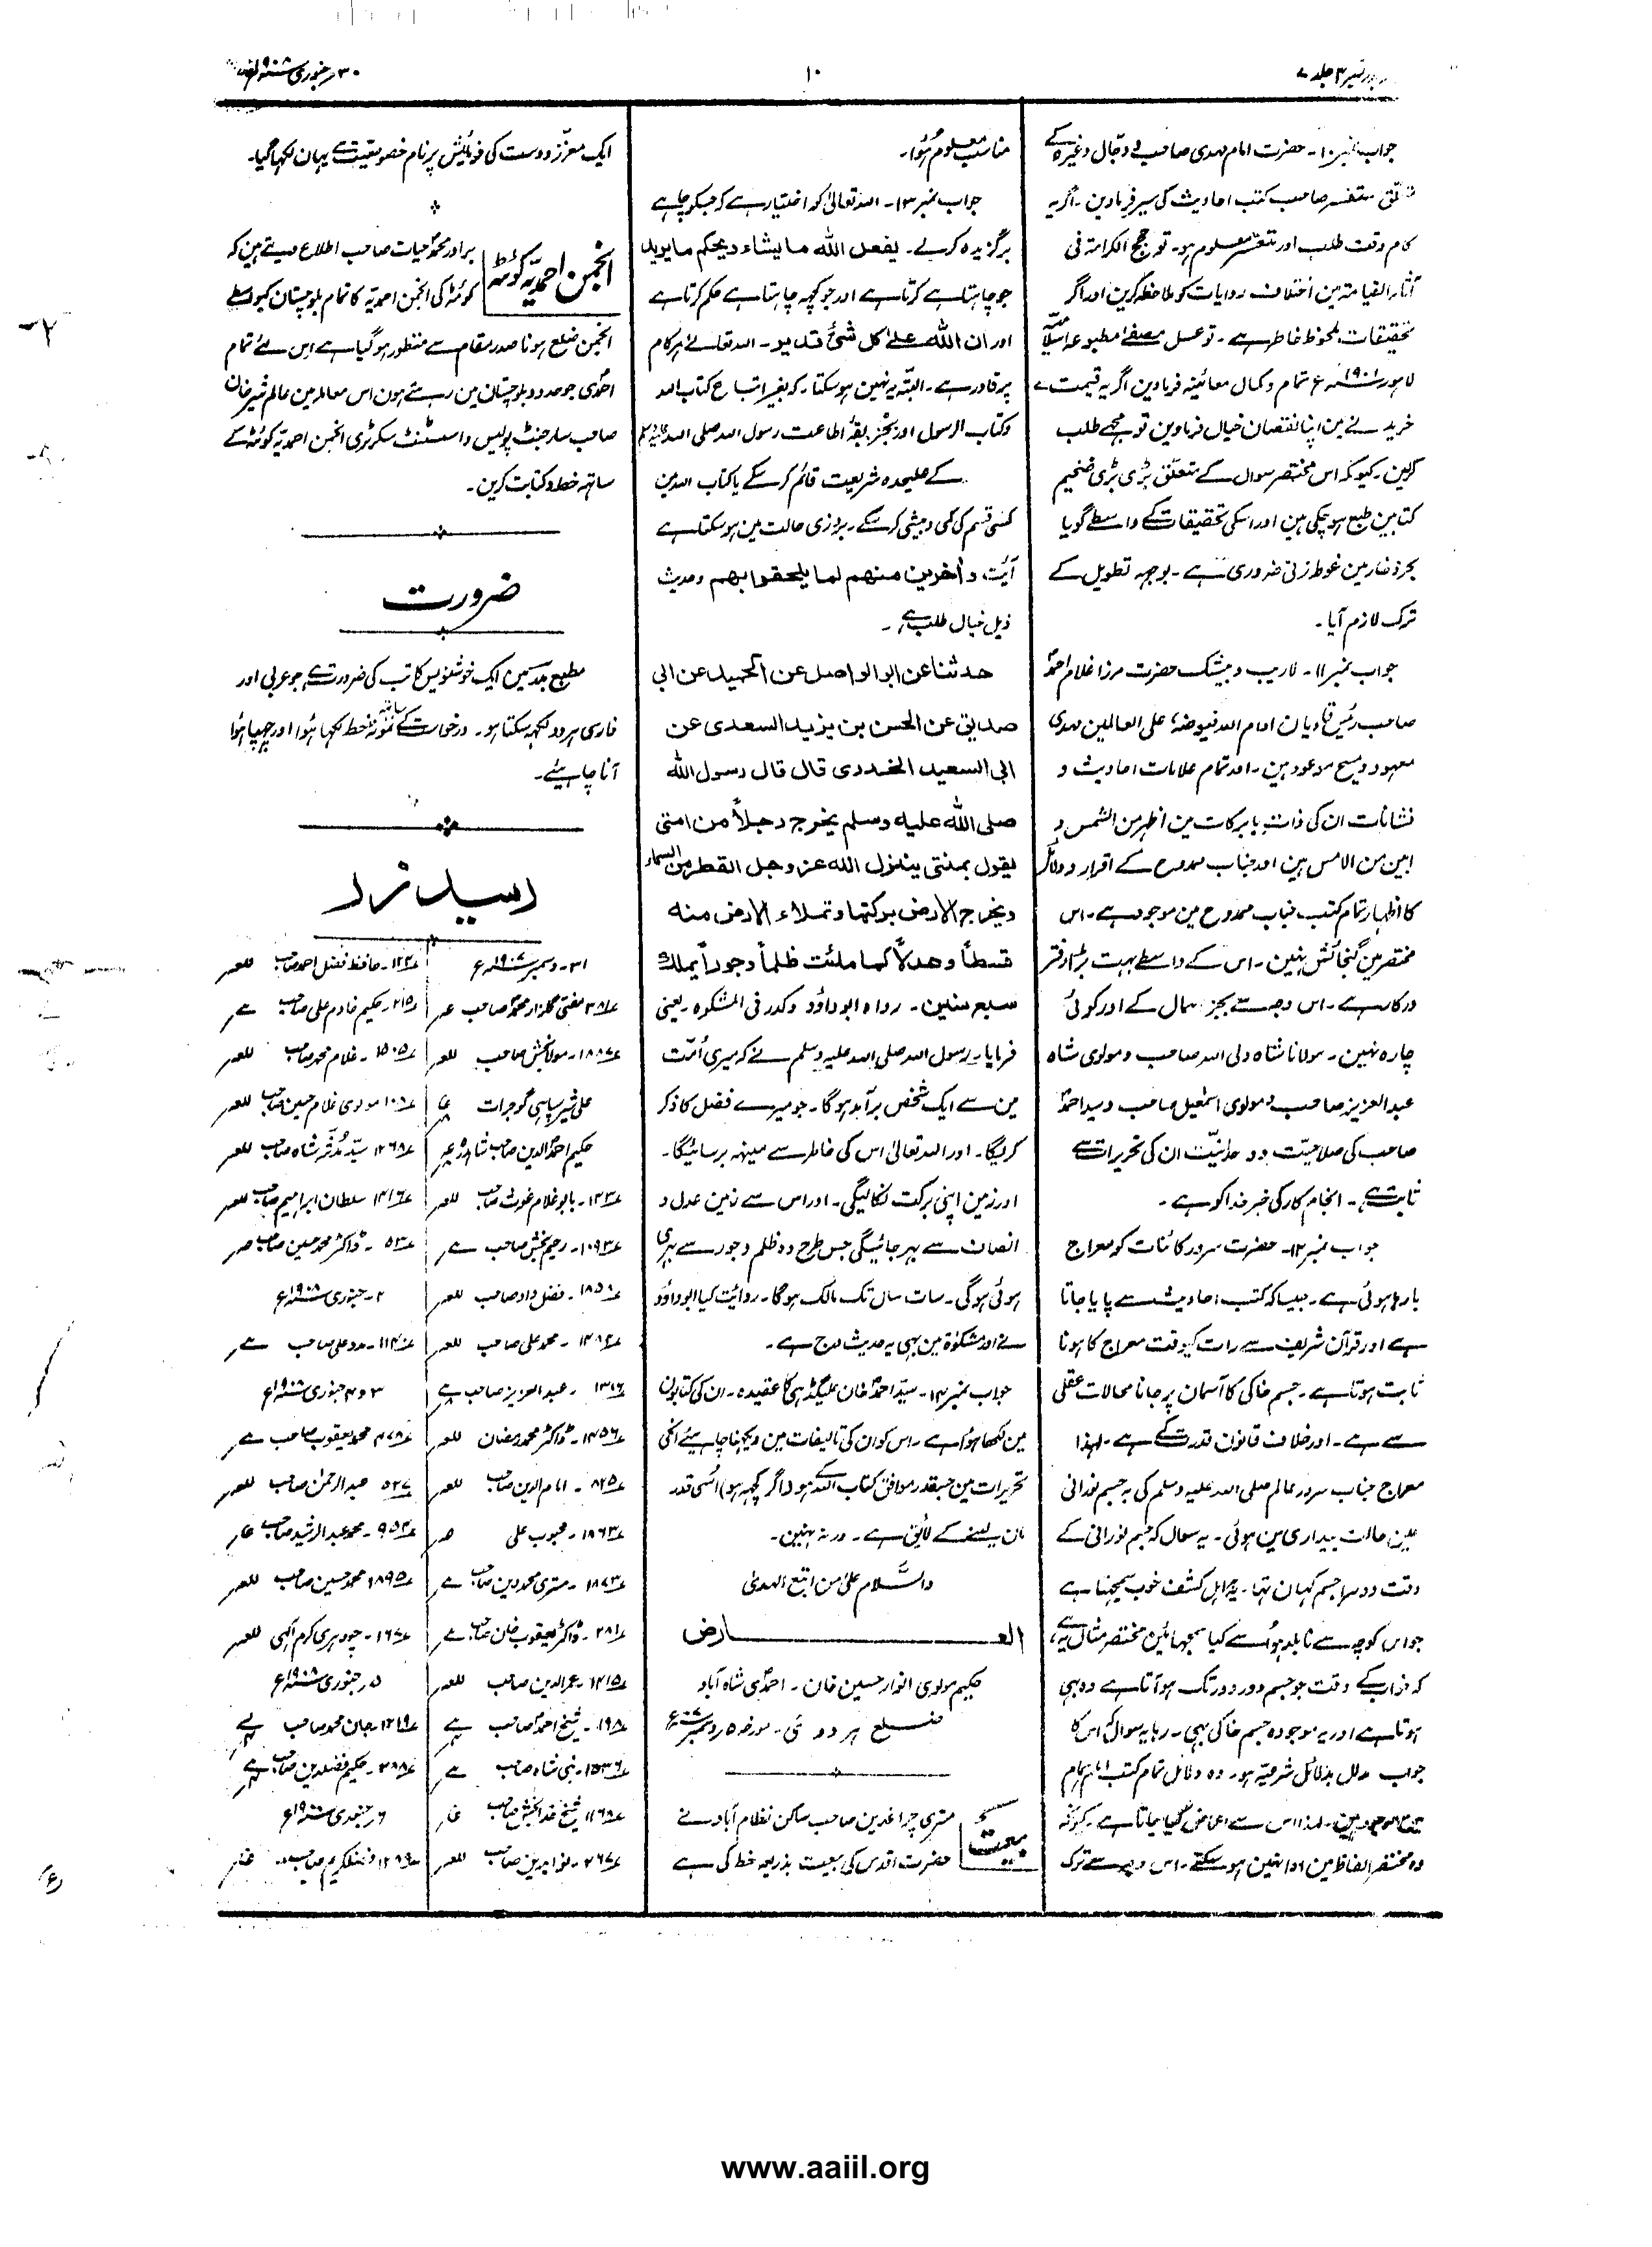 بدر نمبر ۴ جلد ۷
۱۰
۳۰ جنوری ۱۹۰۸ء
جواب نمبر ۱۰۔ حضرت امام مہدی صاحب و دجال وغیرہ کے
متعلق مستفسر صاحب کتب احادیث کی سیر فرمادین۔ اگر یہ
کام وقت طلب اور متعسر معلوم ہو۔ تو حجج الکرامہ فی
آثار القیامہ مین اختلاف روایات کو ملاحظہ کرین اور اگر
تحقیقات ملحوظ خاطر ہے۔ تو عسل مصفّٰے مطبوعہ اسلامیہ
لاہور ۱۹۰۱ء تمام و کمال معائینہ فرمادین اگر بہ قیمت
خریدنے مین اپنا نقصان خیال فرمادین تو مجھسے طلب
کرلین۔ کیونکہ اس مختصر سوال کے متعلق بڑی بڑی ضخیم
کتابین طبع ہوچکی ہین اور اسکی تحقیقات کے واسطے گویا
بحر ذخار مین غوطہ زنی ضروری ہے۔ بوجہ تطویل کے
ترک لازم آیا۔
جواب نمبر ۱۱۔ لاریب و بیشک حضرت مرزا غلام احمد
صاحب رئیس قادیان ادام اللہ فیوضہٗ علی العالمین مہدی
معہود و مسیح موعود ہین۔ اور تمام علامات احادیث و
نشانات ان کی ذات بابرکات مین اظہر من الشمس و
ابین من الامس ہین اور جناب ممدوح کے اقرار و دلائل
کا اظہار تمام کتب جناب ممدوح مین موجود ہے۔ اس
مختصر مین گنجائش نہین۔ اس کے واسطے بہت بڑا دفتر
درکار ہے۔ اس وجہ سے بجز اہمال کے اور کوئی
چارہ نہین۔ مولانا شاہ ولی اللہ صاحب و مولوی شاہ
عبد العزیز صاحب و مولوی اسمٰعیل صاحب و سید احمد
صاحب کی صلاحیت و حقانیّت ان کی تحریرات سے
ثابت ہے۔ انجام کار کی خبر خدا کو ہے۔
جواب نمبر ۱۲۔ حضرت سرور کائنات کو معراج
بارہا ہوئی ہے۔ جیسا کہ کتب احادیث سے پایا جاتا
ہے اور قرآن شریف سے رات کیوقت معراج کا ہونا
ثابت ہوتا ہے۔ جسم خاکی کا آسمان پر جانا محالات عقلی
سے ہے۔ اور خلاف قانون قدرت کے ہے۔ لہذا
معراج جناب سرور عالم صلی اللہ علیہ وسلم کی بہ جسم نورانی
عین حالت بیداری مین ہوئی۔ یہ سوال کہ جسم نورانی کے
وقت دوسرا جسم کہان تھا۔ یہ اہل کشف خوب سمجھتا ہے
جو اس کوچہ سے نابلد ہو اُسے کیا سمجھائین مختصر مثال یہ ہے
کہ خواب کے وقت جو جسم دور دور تک ہو آتا ہے وہ بھی
ہوتا ہے اور یہ موجودہ جسم خاکی بھی۔ رہا یہ سوال کہ اس کا
جواب مدلل بدلائل شرعیہ ہو۔ وہ دلائل تمام کتب امام ہمام
مین موجود ہین۔ لہذا اس سے اعراض کیا جاتا ہے۔ کیونکہ
وہ مختصر الفاظ مین ادا نہین ہوسکتے۔ اس وجہ سے ترک
مناسب معلوم ہوا۔
جواب نمبر ۱۳۔ اللہ تعالیٰ کو اختیار ہے کہ جسکو چاہے
برگزیدہ کرلے۔ یفعل اللہ مایشاء ویحکم مایرید
جو چاہتا ہے کرتا ہے اور جو کچھ چاہتا ہے حکم کرتا ہے
اور ان اللہ علےٰ کل شیٔ قدیر۔ اللہ تعالےٰ ہر کام
پر قادر ہے۔ البتہ یہ نہین ہوسکتا۔ کہ بغیر اتباع کتاب اللہ
وکتاب الرسول اور بجز ربقۂ اطاعت رسول اللہ صلی اللہ علیہ وسلم
کے علیحدہ شریعت قائم کرسکے یا کتاب اللہ مین
کسی قسم کی کمی و بیشی کرسکے۔ بروزی حالت مین ہوسکتا ہے
آیت واٰخرین منھم لما یلحقوا بھم وحدیث
ذیل خیال طلب ہے۔
حدثنا عن ابو الواصل عن الحمید عن ابی
صدیق عن الحسن بن یزید السعدی عن
ابی السعید الخددی قال قال رسول اللہ
صلی اللہ علیہ وسلم یخرج رجلاً من امتی
یقول بمنتی ینزل اللہ عزوجل القطر من السماء
ویخرج الارض برکتھا وتملاء الارض منہ
قسطاً وعدلاً کما ملئت ظلماً وجوراً یملک
سبع سنین۔ رواہ ابو داؤد وکدر فی المشکوٰہ۔ یعنی
فرمایا رسول اللہ صلی اللہ علیہ وسلم نے کہ میری اُمّت
مین سے ایک شخص برآمد ہوگا۔ جو میرے فضل کا ذکر
کریگا۔ اور اللہ تعالیٰ اس کی خاطر سے مینہہ برسائیگا۔
اور زمین اپنی برکت نکالیگی۔ اور اس سے زمین عدل و
انصاف سے بہر جائیگی جس طرح وہ ظلم وجور سے بہری
ہوئی ہوگی۔ سات سال تک مالک ہوگا۔ روایت کیا ابو داؤد
نے اور مشکوٰۃ مین بھی یہ حدیث درج ہے۔
جواب نمبر ۱۴۔ سید احمد خان علیگڈہی کا عقیدہ۔ ان کی کتابون
مین لکھا ہوا ہے۔ اس کو ان کی تالیفات مین دیکھنا چاہیئے انکی
تحریرات مین جسقدر موافق کتاب اللہ کے ہو (اگر کچھ ہو) اُسی قدر
مان لینے کے لائق ہے۔ ورنہ نہین۔
والسّلام علیٰ من اتبع الہدیٰ
العارض
حکیم مولوی انوار حسین خان۔ احمدی شاہ آباد
ضلع ہردوئی۔ مورخہ ۵ دسمبر ۱۹۰۷ء
بیعت
مستری چراغدین صاحب ساکن نظام آباد نے
حضرت اقدس کی بیعت بذریعہ خط کی ہے
ایک معزز دوست کی فرمائش پر نام خصوصیت سے یہان لکھا گیا۔
انجمن احمدیہ کوئٹہ
برادر محمد حیات صاحب اطلاع دیتے ہین کہ
کوئٹہ کی انجمن احمدیہ کا تمام بلوچستان کیواسطے
انجمن ضلع ہونا صدر مقام سے منظور ہوگیا ہے اس لئے تمام
احمدی جو حدود بلوچستان مین رہتے ہون اس معاملہ مین عالم شیر خان
صاحب سارجنٹ پولیس و اسسٹنٹ سکرٹری انجمن احمدیہ کوئٹہ کے
ساتھ خط وکتابت کرین۔
ضرورت
مطبع بدر مین ایک خوشنویس کاتب کی ضرورت ہے جو عربی اور
فارسی ہردو لکھ سکتا ہو۔ درخواست کے ساتھ نمونہ خط لکھا ہوا اور چھپا ہوا
آنا چاہیئے۔
رسید زر
۳۱۔ دسمبر ۱۹۰۷ء
مفتی گلزار محمد صاحب
۱۸۸۷۔ مولا بخش صاحب
علی شیر سپاہی گوجرات
حکیم احمد الدین صاحب شاہدرہ
بابو غلام غوث صاحب
۱۰۹۳۔ رحیم بخش صاحب
۱۸۵۸۔ فضل داد صاحب
محمد علی صاحب
۱۳۱۶۔ عبد العزیز صاحب
۱۴۵۶۔ ڈاکٹر محمد رمضان
۸۲۵۔ امام الدین صاحب
۱۸۶۳۔ محبوب علی
۱۸۷۳۔ مستری محمد دین صاحب
۲۸۱۔ ڈاکٹر یعقوب خان صاحب
۱۴۱۵۔ عمر الدین صاحب
۱۹۸۔ شیخ احمد صاحب
۱۵۳۶۔ نبی شاہ صاحب
۱۱۶۸۔ شیخ خدا بخش صاحب
۲۶۷۔ نواب دین صاحب
حافظ فضل احمد صاحب
۲۱۵۔ حکیم خادم علی صاحب
۱۵۰۵۔ غلام محمد صاحب
۱۰۸۔ مولوی غلام حسین صاحب
۱۲۶۸۔ سید مدثر شاہ صاحب
۱۴۱۶۔ سلطان ابراہیم صاحب
۵۳۔ ڈاکٹر محمد حسین صاحب
۲۔ جنوری ۱۹۰۸ء
۱۱۴۔ مدد علی صاحب
۳ و ۴ جنوری ۱۹۰۸ء
۴۷۸۔ محمد یعقوب صاحب
۵۲۷۔ عبد الرحمٰن صاحب
۹۵۴۔ محمد عبد الرشید صاحب
۱۸۹۵۔ محمد حسین صاحب
۱۶۷۔ چودہری کرم الٰہی
۵۔ جنوری ۱۹۰۸ء
۱۲۱۹۔ جان محمد صاحب
۲۸۸۔ حکیم فضلدین صاحب
۶۔ جنوری ۱۹۰۸ء
فضلکریم صاحب
www.aaiil.org